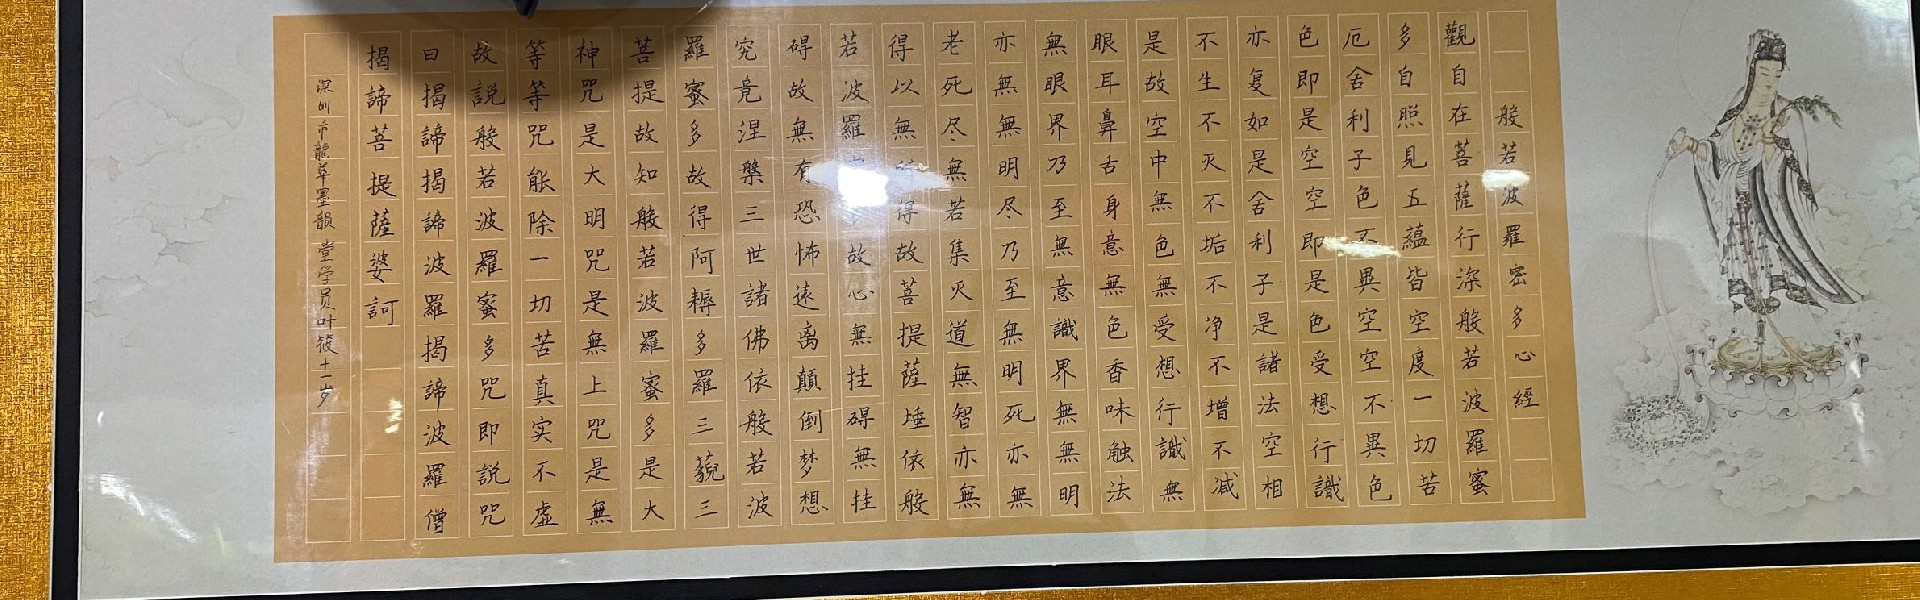 般若波羅密多心經
觀自在菩薩行深般若波羅蜜
多自照見五蘊皆空度一切苦
厄舍利子色不異空空不異色
色即是空空即是色受想行識
亦复如是舍利子是諸法空相
不生不灭不垢不净不增不减
是故空中無色無受想行識無
眼耳鼻舌身意無色香味触法
無眼界乃至無意識界無無明
亦無無明尽乃至無明死亦無
老死尽無若集灭道無智亦無
得以無所得故菩提薩埵依般
若波羅故心無挂碍無挂
碍故無有恐怖遠离顛倒梦想
究竟涅槃三世諸佛依般若波
羅蜜多故得阿耨多羅三藐三
菩提故知般若波羅蜜多是大
神咒是大明咒是無上咒是無
等等咒能除一切苦真实不虚
故説般若波羅蜜多咒即説咒
曰揭諦揭諦波羅揭諦波羅僧
揭諦菩提薩婆訶
深圳市龍華墨韻堂学员叶筱十一岁